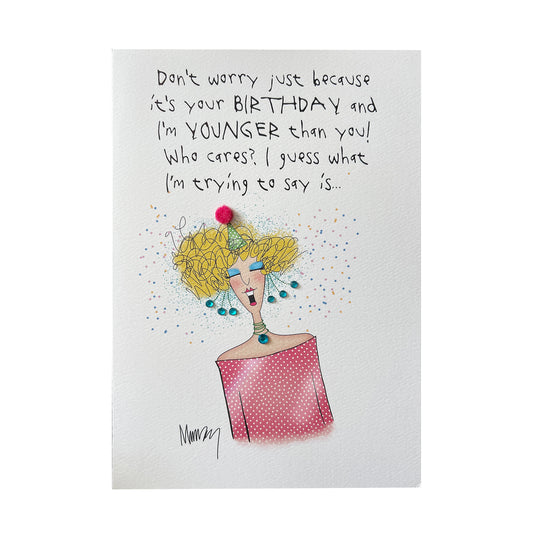 Don't worry just because
it's your BIRTHDAY and
I'm YOUNGER than you!
Who cares? I guess what
I'm trying to say is...